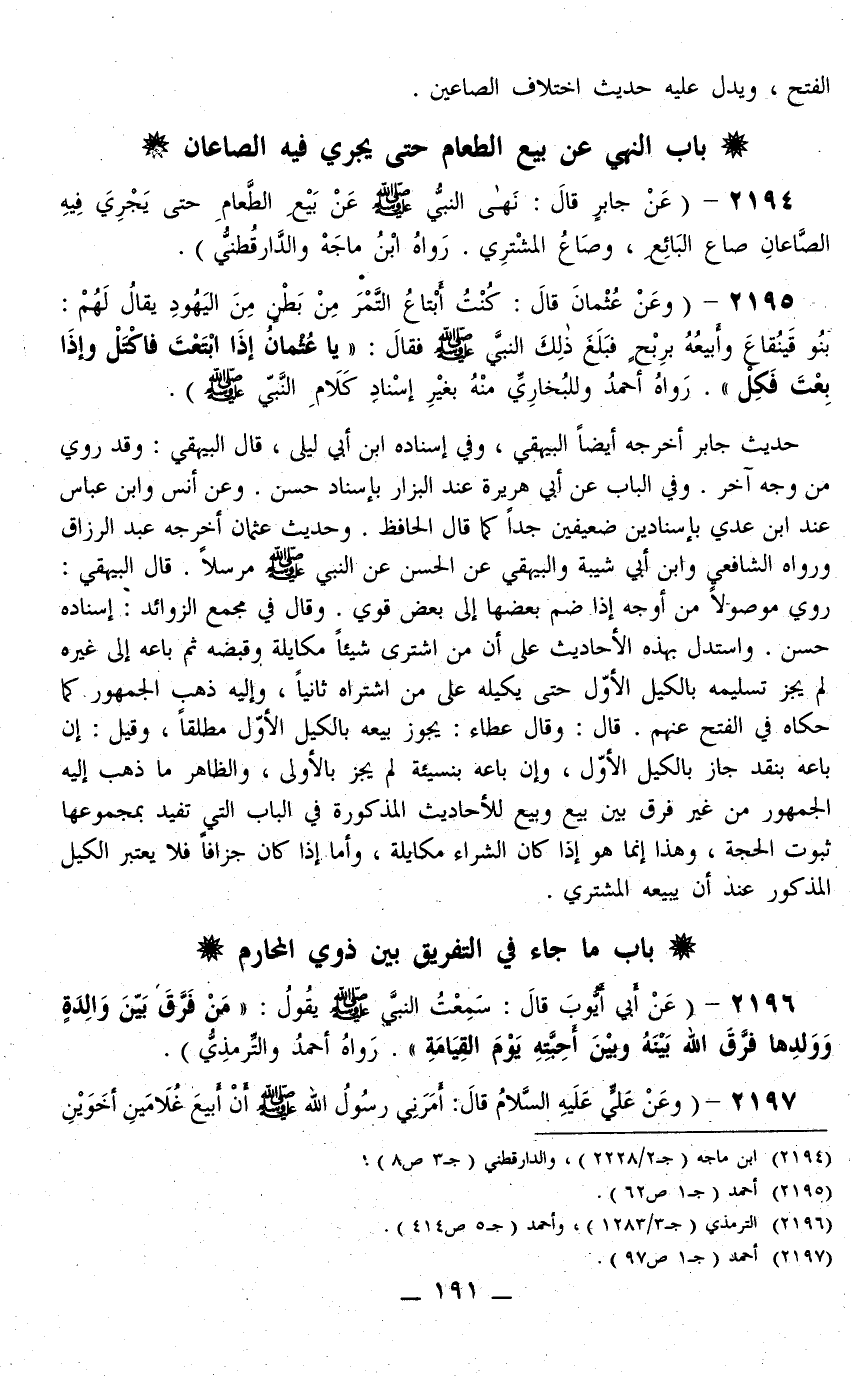 الفتح ، ويدل عليه حديث اختلاف الصاعين .
باب النهي عن بيع الطعام حتى يجري فيه الصاعان
٢١٩٤ – ( عَنْ جابرٍ قالَ : نَهٰى النبيُّ ﷺ عَنْ بَيْعِ الطَّعامِ حتى يَجْرِيَ فِيهِ
الصَّاعانِ صاع البَائِعِ ، وصَاعُ المشْتَرِي . رَواهُ ابْنُ ماجَهْ والدَّارقُطنيُّ ) .
٢١٩٥ – ( وعَنْ عُثْمانَ قالَ : كُنْتُ أَبْتاعُ التَّمْرَ مِنْ بَطْنٍ مِنَ اليَهُودِ يقالُ لَهُمْ :
بَنُو قَينُقاعَ وأَبيعُهُ بربْحٍ فبَلَغَ ذٰلِكَ النبيَّ ﷺ فقالَ : « يا عُثْمانُ إذَا ابْتَعْتَ فاكْتَلْ وإذَا
بِعْتَ فَكِلْ » . رَواهُ أحمدُ وللبُخاريِّ منْهُ بغَيْرِ إسْنادِ كَلَامِ النَّبيّ ﷺ ) .
حديث جابر أخرجه أيضاً البيهقي ، وفي إسناده ابن أبي ليلى ، قال البيهقي : وقد روي
من وجه آخر . وفي الباب عن أبي هريرة عند البزار بإسناد حسن . وعن أنس وابن عباس
عند ابن عدي بإسنادين ضعيفين جداً كما قال الحافظ . وحديث عثمان أخرجه عبد الرزاق
ورواه الشافعي وابن أبي شيبة والبيهقي عن الحسن عن النبي ﷺ مرسلاً . قال البيهقي :
روي موصولاً من أوجه إذا ضم بعضها إلى بعض قوي . وقال في مجمع الزوائد : إسناده
حسن . واستدل بهذه الأحاديث على أن من اشترى شيئاً مكايلة وقبضه ثم باعه إلى غيره
لم يجز تسليمه بالكيل الأوّل حتى يكيله على من اشتراه ثانياً ، وإليه ذهب الجمهور كما
حكاه في الفتح عنهم . قال : وقال عطاء : يجوز بيعه بالكيل الأوّل مطلقاً ، وقيل : إن
باعه بنقد جاز بالكيل الأوّل ، وإن باعه بنسيئة لم يجز بالأولى ، والظاهر ما ذهب إليه
الجمهور من غير فرق بين بيع وبيع للأحاديث المذكورة في الباب التي تفيد بمجموعها
ثبوت الحجة ، وهذا إنما هو إذا كان الشراء مكايلة ، وأما إذا كان جزافاً فلا يعتبر الكيل
المذكور عند أن يبيعه المشتري .
باب ما جاء في التفريق بين ذوي المحارم
٢١٩٦ – ( عَنْ أَبي أَيُّوبَ قالَ : سَمِعْتُ النبيَّ ﷺ يقُولُ : « مَنْ فَرَّقَ بَيْنَ وَالِدَةٍ
وَوَلدِها فرَّقَ الله بَيْنَهُ وبيْنَ أَحِبَّتِهِ يَوْمَ القِيَامَةِ » . رَواهُ أحمدُ والتِّرمذِيُّ ) .
٢١٩٧ – ( وعَنْ عَليٍّ عَلَيهِ السَّلامُ قالَ: أَمَرَنِي رسُولُ الله ﷺ أَنْ أَبيعَ غُلَامَينِ أخَوَيْنِ
(٢١٩٤) ابن ماجه ( جـ٢/٢٢٢٨ ) ، والدارقطني ( جـ٣ ص٨ ) .
(٢١٩٥) أحمد ( جـ١ ص٦٢ ) .
(٢١٩٦) الترمذي ( جـ٣/١٢٨٣ ) ، وأحمد ( جـ٥ ص٤١٤ ) .
(٢١٩٧) أحمد ( جـ١ ص٩٧ ) .
– ١٩١ –